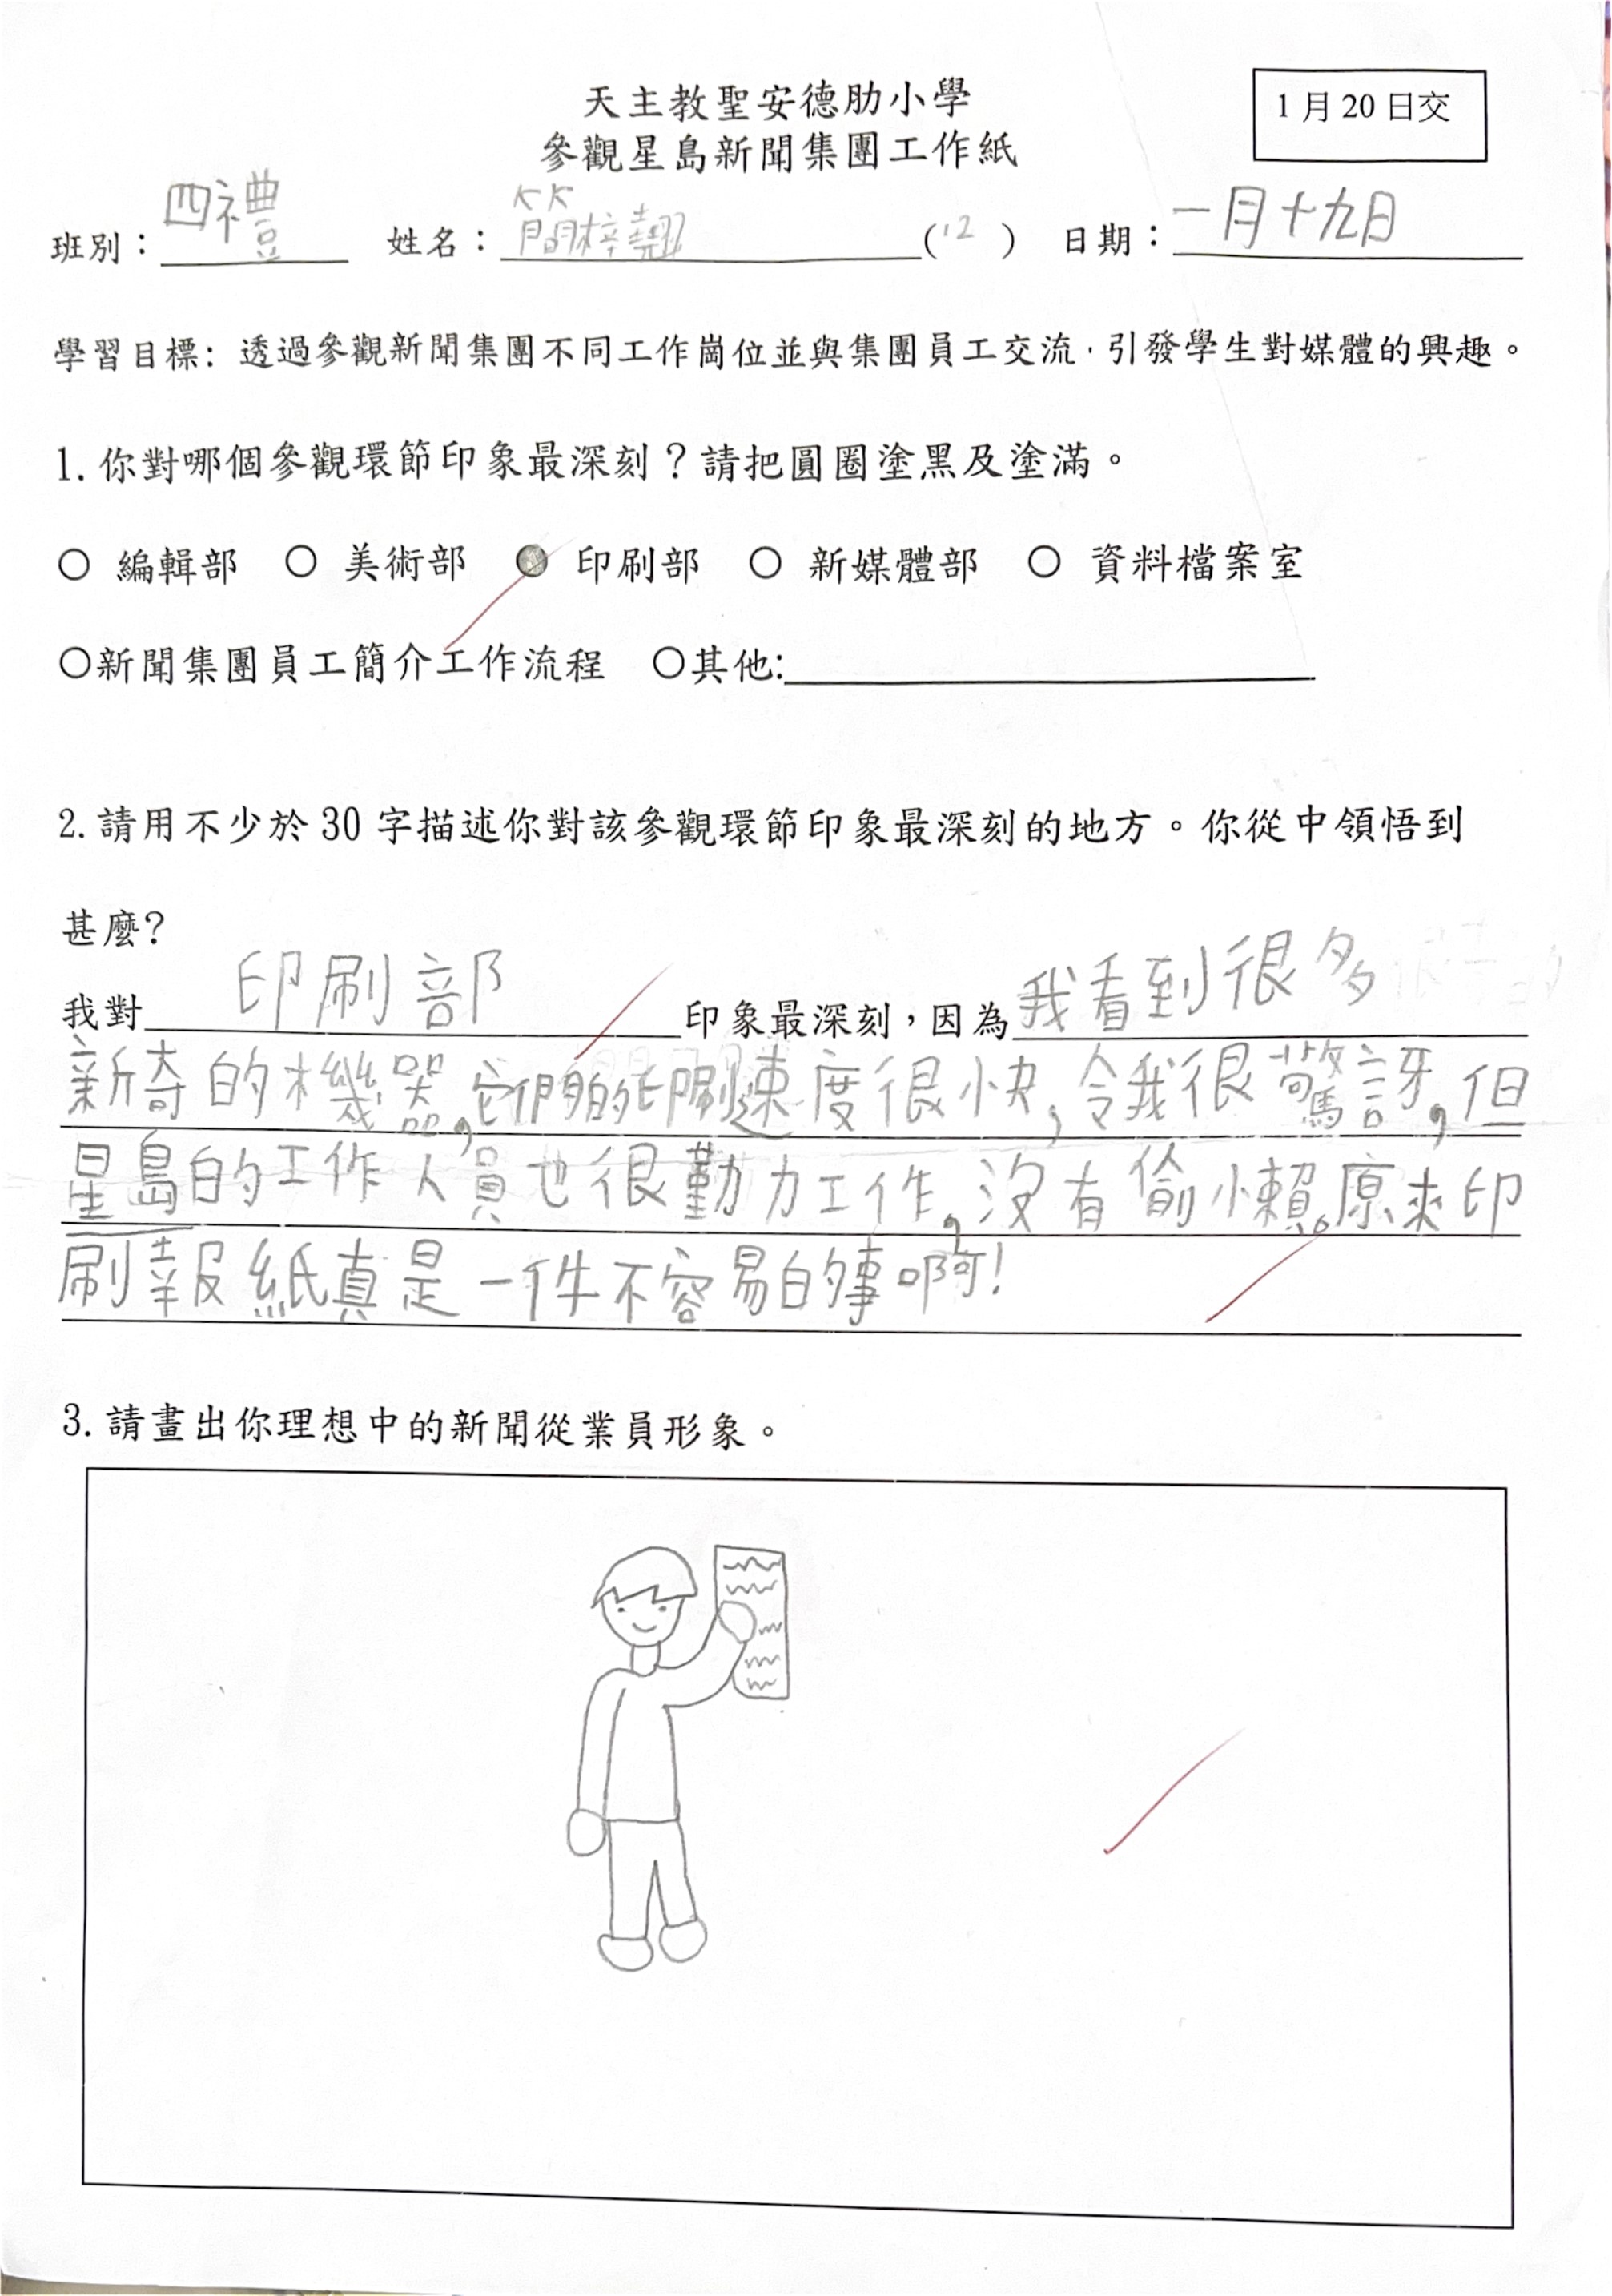 天主教聖安德肋小學
1月20日交
參觀星島新聞集團工作紙
班別：四禮 姓名：簡梓翹 (12) 日期：一月十九日
學習目標：透過參觀新聞集團不同工作崗位並與集團員工交流，引發學生對媒體的興趣。
1. 你對哪個參觀環節印象最深刻？請把圓圈塗黑及塗滿。
○ 編輯部 ○ 美術部 ● 印刷部 ○ 新媒體部 ○ 資料檔案室
○新聞集團員工簡介工作流程 ○其他:
2. 請用不少於 30 字描述你對該參觀環節印象最深刻的地方。你從中領悟到
甚麼?
我對印刷部印象最深刻，因為我看到很多
新奇的機器，它們的印刷速度很快，令我很驚訝，但
星島的工作人員也很勤力工作，沒有偷懶。原來印
刷報紙真是一件不容易的事啊！
3. 請畫出你理想中的新聞從業員形象。